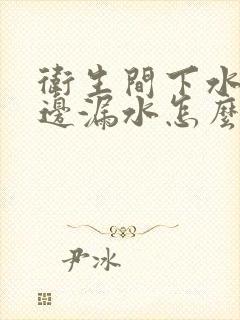 衛生間下水
邊漏水怎麼
尹冰